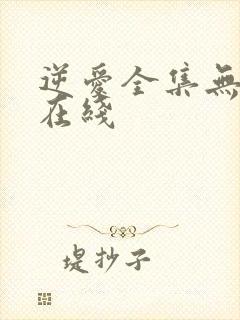 逆愛全集無
在綫
堤抄子